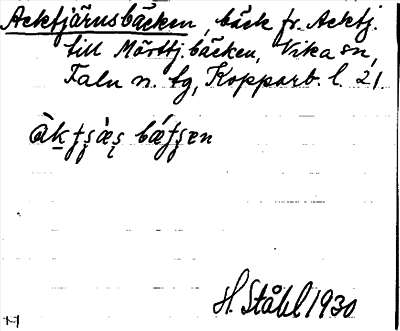 Acktjärnsbäcken, bäck fr. Acktj.
till Mörttj.bäcken, Vika sn,
Falu n. tg, Kopparb. l. 21.
H. Ståhl 1930